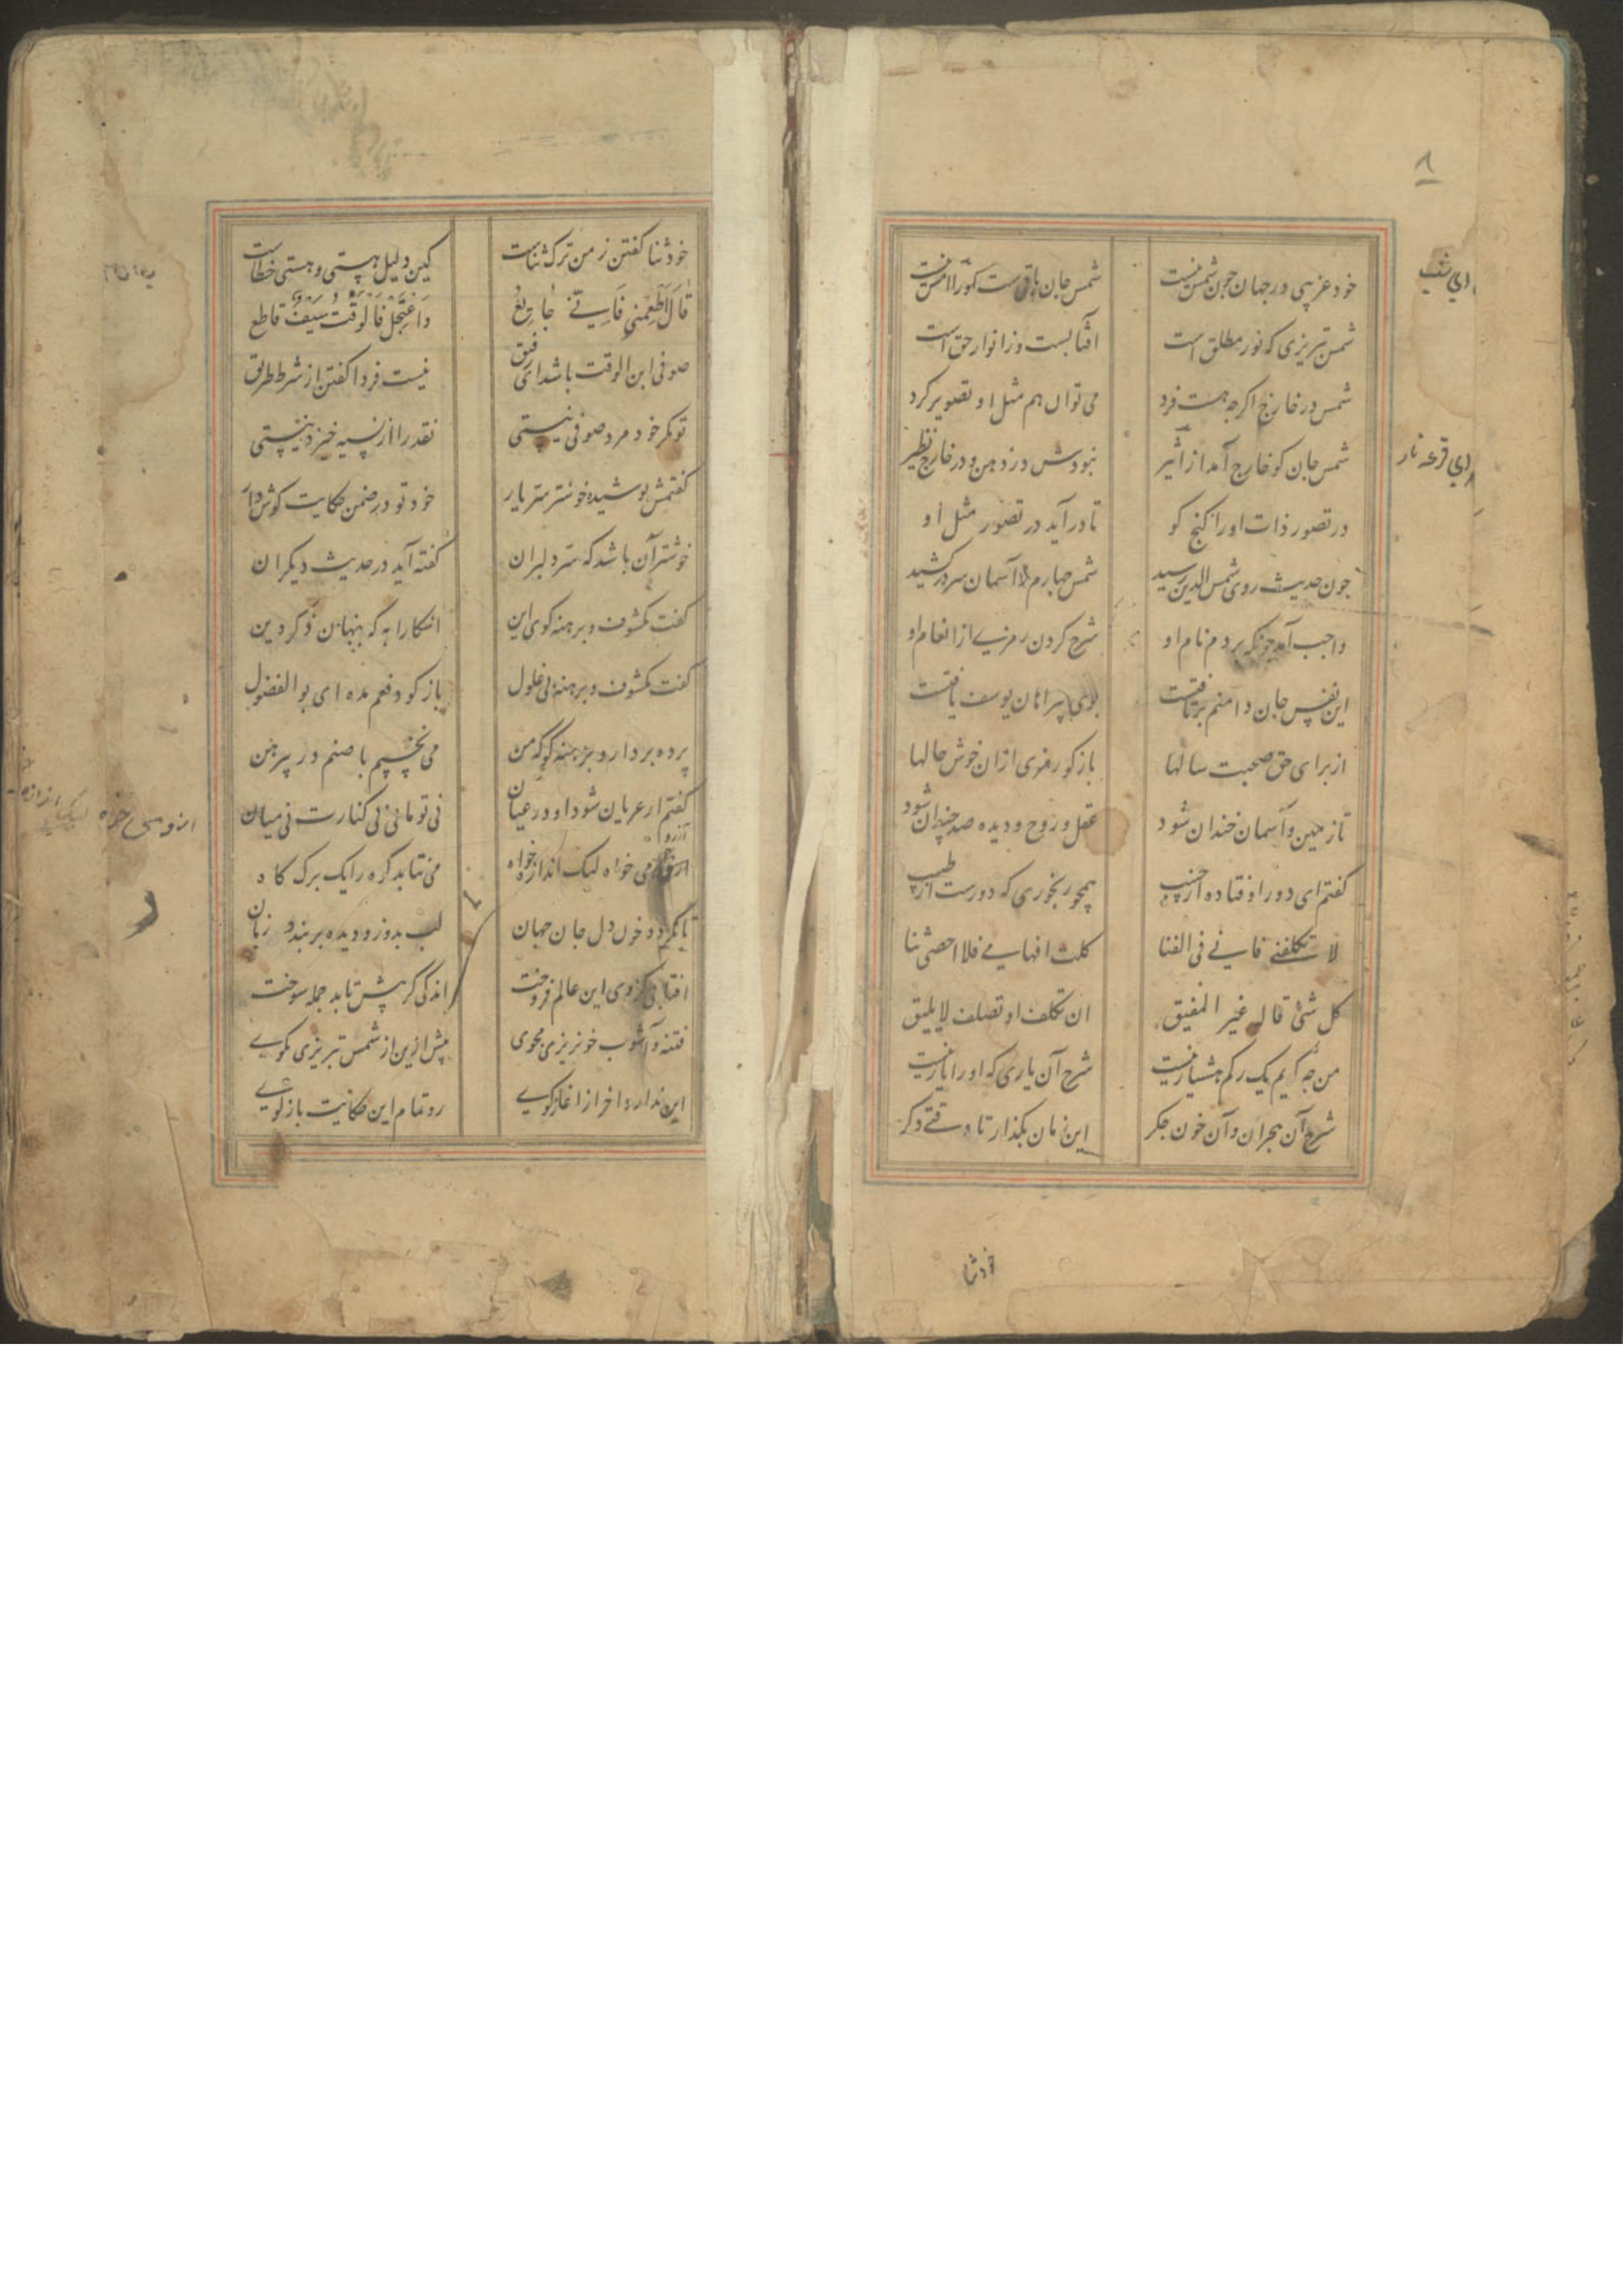 ۸
خود غریبی در جهان چون شمس نیست شمس جان باقیست کورا امس نیست
شمس تبریزی که نور مطلق است افتابست و ز انوار حق است
شمس در خارج اکرچه هست فرد می توان هم مثل او تصویر کرد
شمس جان کو خارج آمد از اثیر نبودش در ذهن و در خارج نظیر
در تصور ذات او را کنج کو تا در آید در تصور مثل او
چون حدیث روی شمس الدین رسید شمس چهارم آسمان سر در کشید
واجب آمد چونکه بردم نام او شرح کردن رمزی از انعام او
این نفس جان دامنم برتافتست بوی پیراهان یوسف یافتست
از برای حق صحبت سالها باز کو رمزی ازان خوش حالها
تا زمین و آسمان خندان شود عقل و روح و دیده صد چندان شود
کفتم ای دور اوفتاده از حبیب همچو رنجوری که دورست از طبیب
لا تکلفنی فانی فی الفنا کلت افهامی فلا احصی ثنا
کل شئ قاله غیر المفیق ان تکلف او تصلف لا یلیق
من چه کویم یک رکم هشیار نیست شرح آن یاری که او را یار نیست
شرح آن هجران و آن خون جکر این زمان بکذار تا وقتی دکر
خود ثنا
خود ثنا کفتن ز من ترک ثناست کین دلیل هستی و هستی خطاست
قَالَ اَطْعِمْنِي فَاِنِّي جَائِعُ وَاعْتَجِلْ فَالْوَقْتُ سَیْفٌ قاطع
صوفی ابن الوقت باشد ای رفیق نیست فردا کفتن از شرط طریق
تو مکر خود مرد صوفی نیستی نقد را از نسیه خیزد نیستی
کفتمش پوشیده خوشتر سر یار خود تو در ضمن حکایت کوش دار
خوشتر آن باشد که سر دلبران کفته آید در حدیث دیکران
کفت مکشوف و برهنه کوی این اشکارا به که پنهان ذکر دین
کفت مکشوف و برهنه بی غلول باز کو دفعم مده ای بو الفضول
پرده بردار و برهنه کو که من می نخسپم با صنم در پیرهن
کفتم ار عریان شود او در عیان نی تو مانی نی کنارت نی میان
ارزو می خواه لیک اندازه خواه بر نتابد کوه را یک برک کاه
تا نکردد خون دل جان جهان لب بدوز و دیده بر بند زبان
افتابی کزوی این عالم فروخت اندکی کر پیش تابد جمله سوخت
فتنه و آشوب خونریزی مجوی بیش ازین از شمس تبریزی مکوی
این ندارد اخر از اغاز کوی رو تمام این حکایت باز کوی